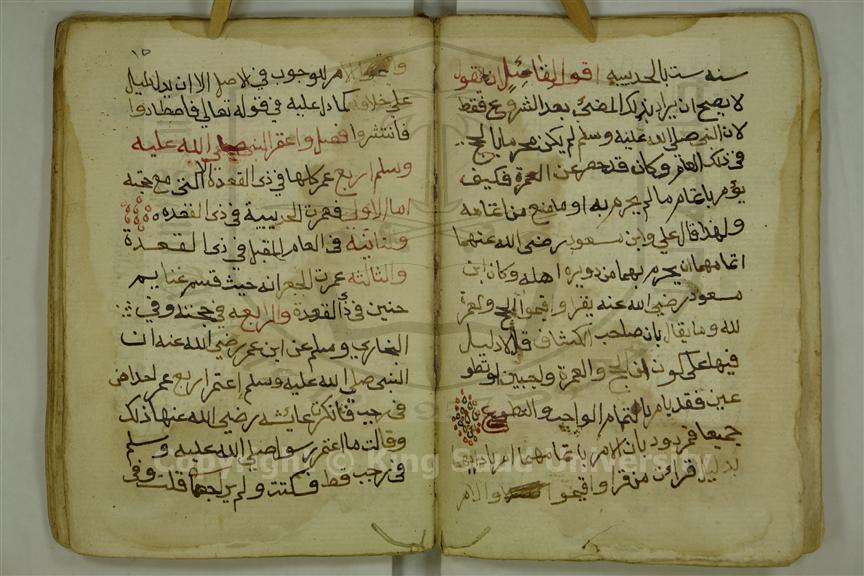 سنه ست بالحديبيه اقول لقائل ان يقول
لا يصح ان يراد بذلك المضي بعد الشروع فقط
لان النبي صلى الله عليه وسلم لم يكن محرما بالحج
في ذلك العام وكان قد حصر عن العمرة فكيف
يؤمر باتمام ما لم يحرم به او ما منع من اتمامه
ولهذا قال علي وابن مسعود رضي الله عنهما
اتمامهما ان يحرم بهما من دويره اهله وكان ابن
مسعود رضي الله عنه يقرا واقيموا الحج والعمرة
لله وما يقال بان صاحب الكشاف قال لا دليل
فيها على كون الحج والعمرة واجبين او تطو
عين فقد يامر باتمام الواجب والتطوع
جميعا فمردود بان الامر باتمامهما امر بادايهما
بدليل قراءة من قرا واقيموا والامر
١٥
الامر للوجوب في الاصل الا ان يدل دليل
على خلافه كما دل عليه في قوله تعالى فاصطادوا
فانتشروا فصل واعتمر النبي صلى الله عليه
وسلم اربع عمر كلها في ذي القعدة الا التي مع حجته
اما الاولى فعمرت الحديبية في ذي القعده
وثانية في العام المقبل في ذي القعدة
والثالثه عمرت الجعرانه حيث قسم غنايم
حنين في ذي القعدة والرابعه في حجته وفي
البخاري ومسلم عن ابن عمر رضي الله عنه ان
النبي صلى الله عليه وسلم اعتمر اربع عمر احداهن
في رجب فانكرت عايشه رضي الله عنها ذلك
وقالت ما اعتمر رسول الله صلى الله عليه وسلم
في رجب قط فسكت ولم يراجعها قلت وفي
Copyright © King Saud University